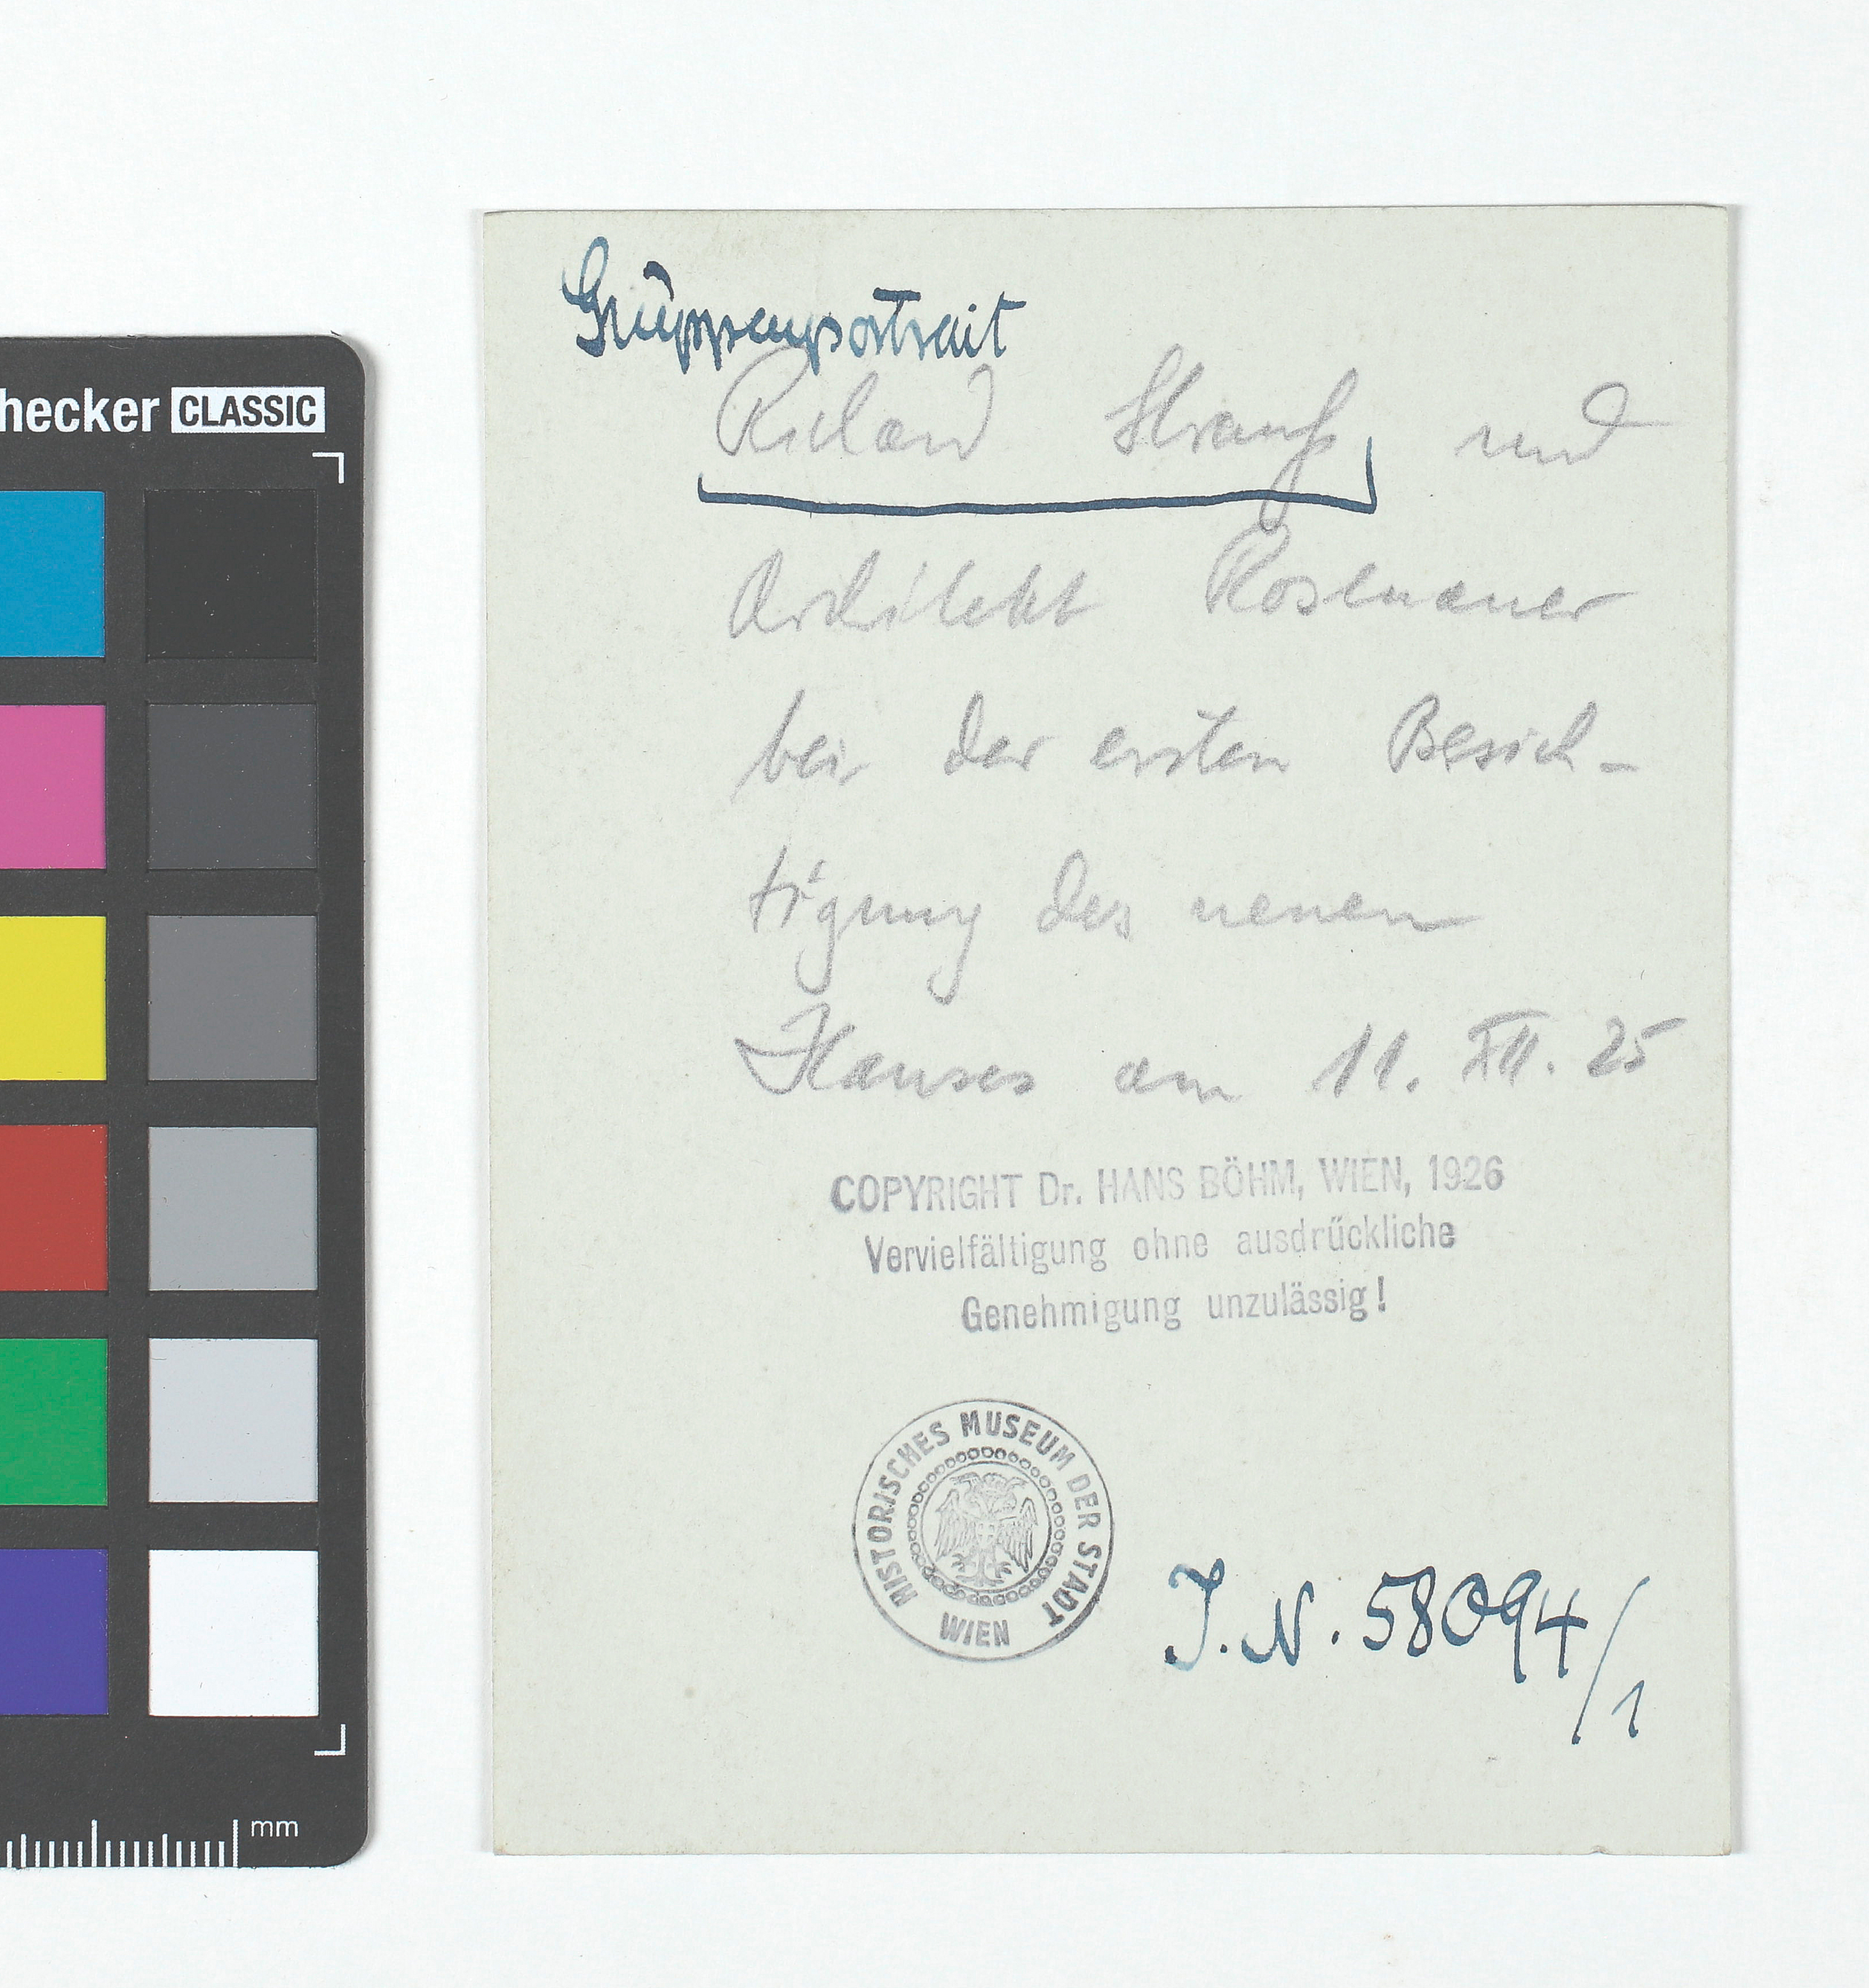 hecker CLASSIC
Gruppenportrait
Richard Strauß und
Architekt Rosenauer
bei der ersten Besich-
tigung des neuen
Hauses am 11. XII. 25
COPYRIGHT Dr. HANS BÖHM, WIEN, 1926
Vervielfältigung ohne ausdrückliche
Genehmigung unzulässig!
HISTORISCHES MUSEUM DER STADT
WIEN
I.N. 58094/1
mm